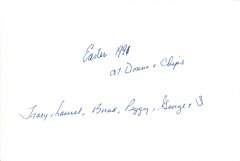 Easter 1991
at Donna & Chip's
Tracy, Laurel, Borax, Peggy, George & I